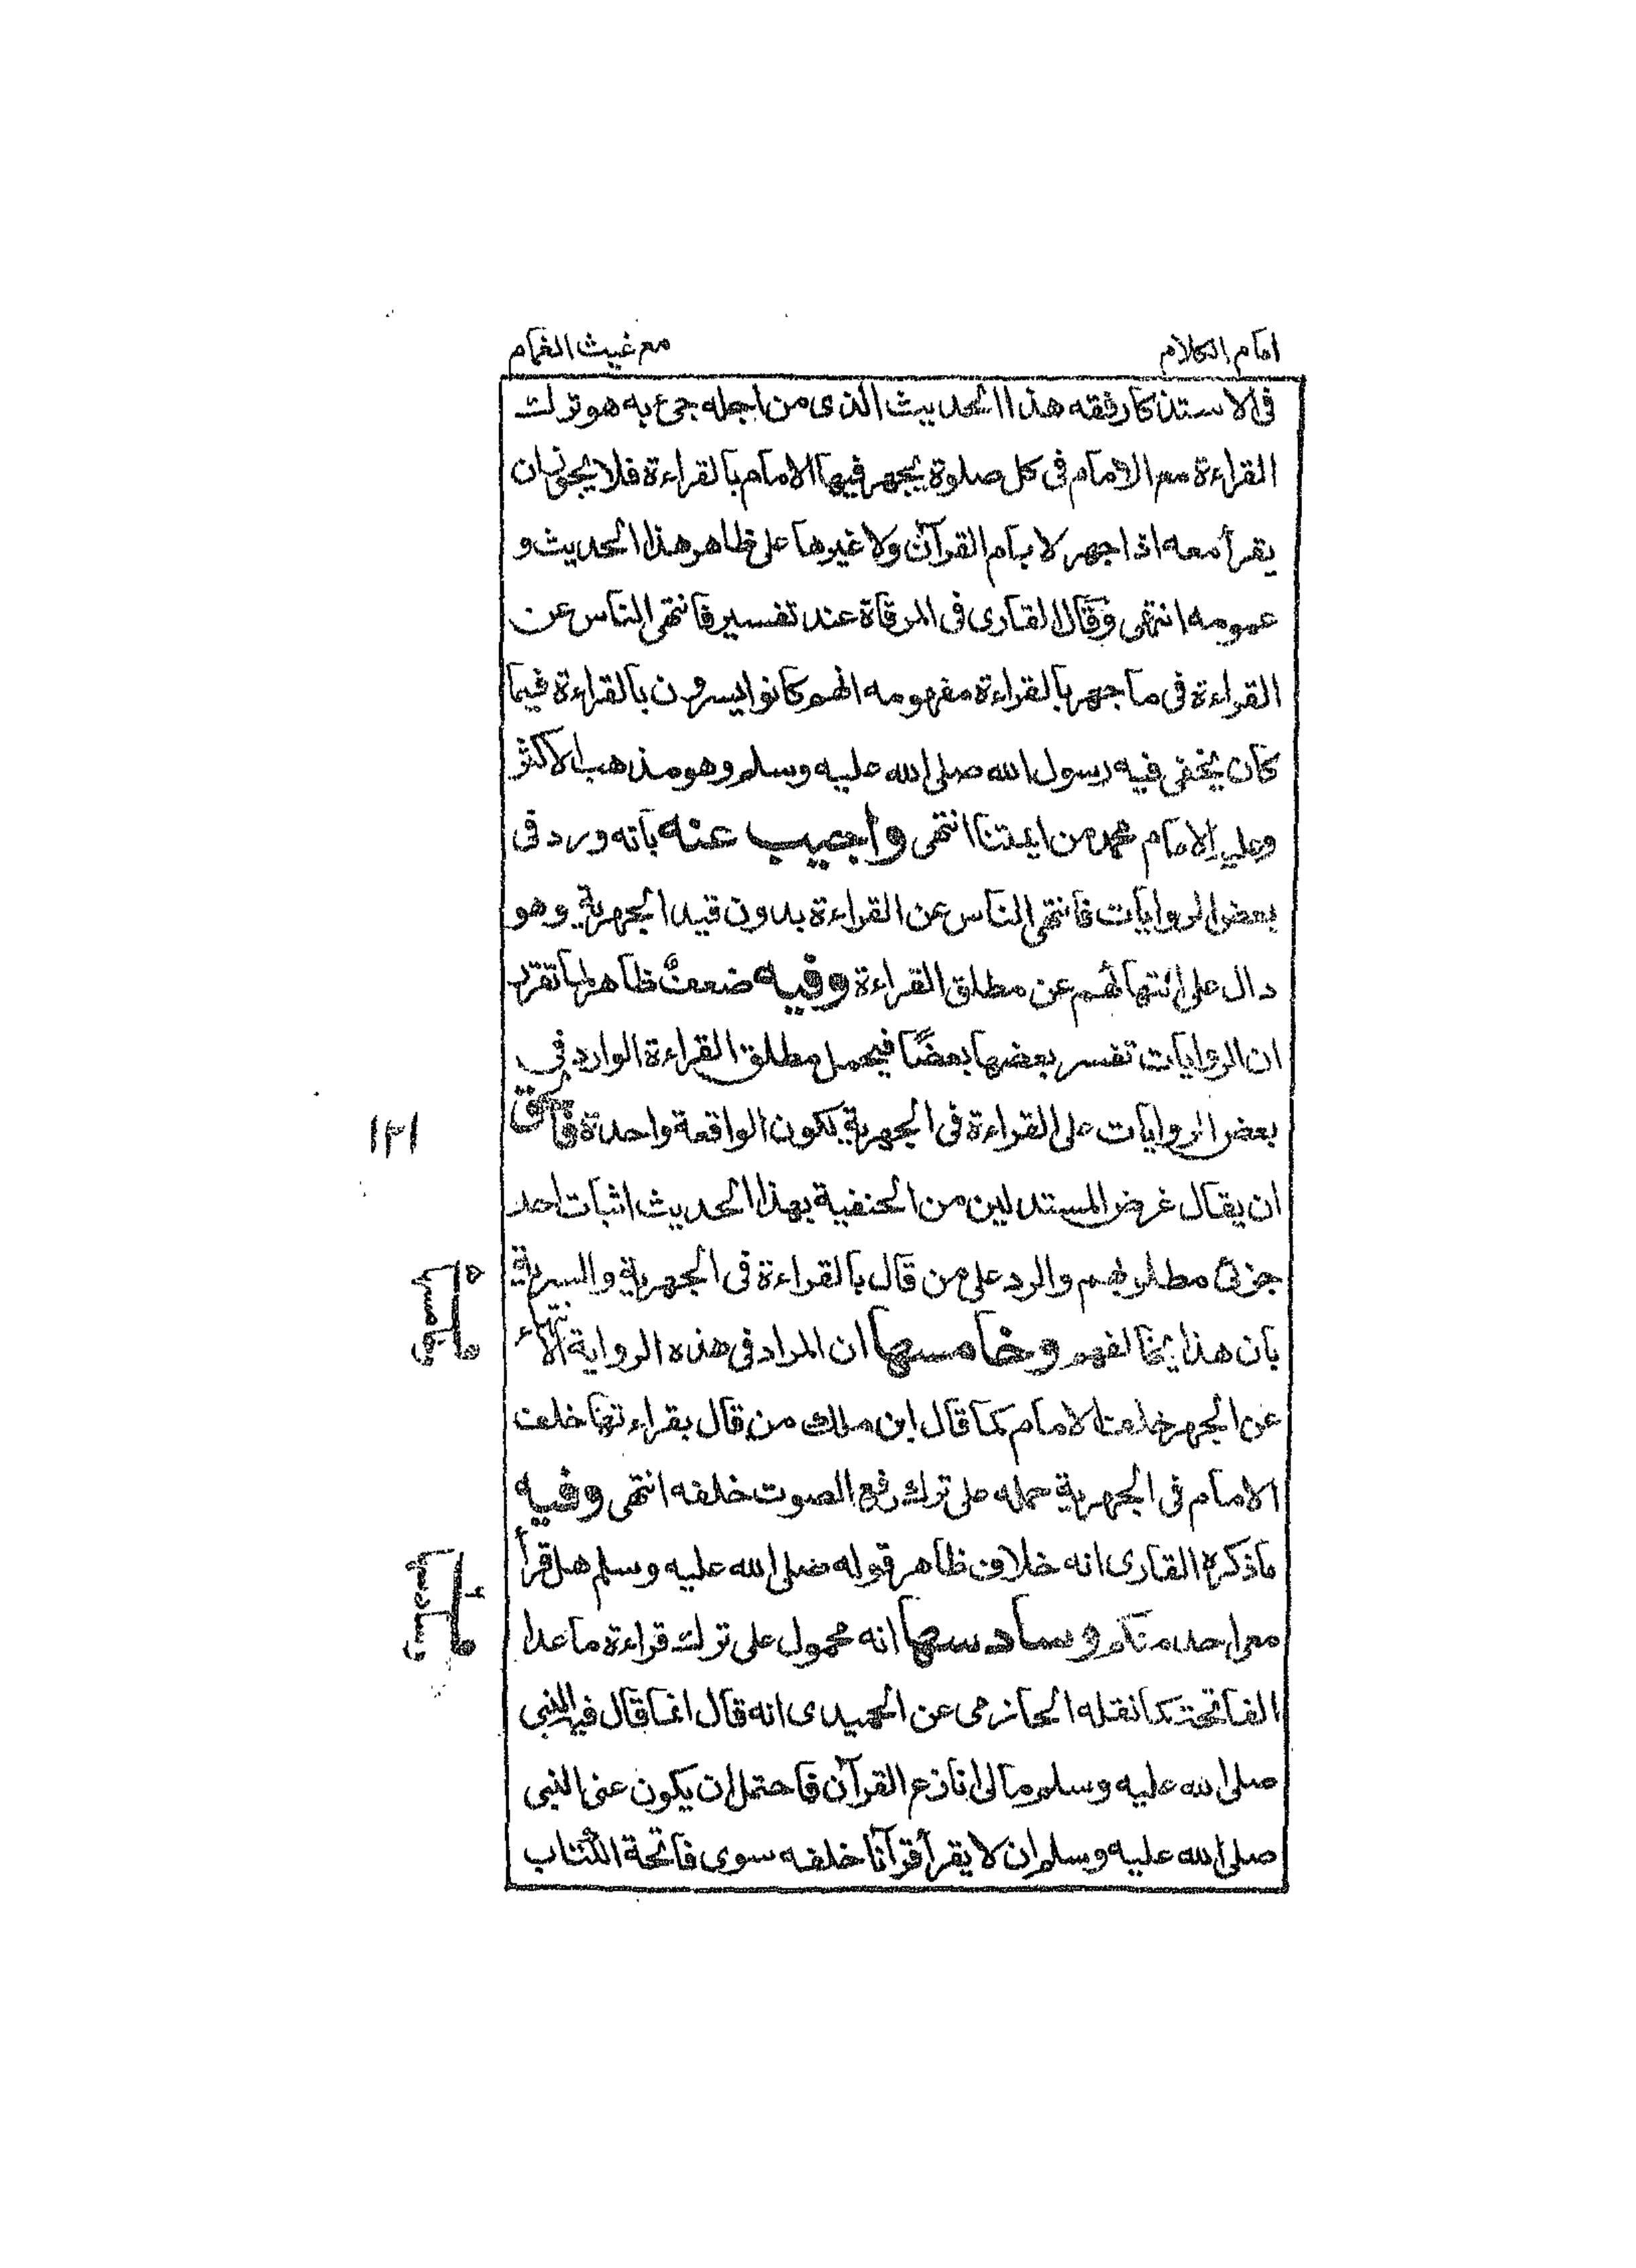 امام الكلام
مع غيث الغمام
فى الاستذكار فقه هذا الحديث الذى من اجله جئ به هو ترك
القراءة مع الامام فى كل صلوة يجهر فيها الامام بالقراءة فلا يجوز ان
يقرأ معه اذا جهر لا بام القرآن ولا غيرها على ظاهر هذا الحديث و
عمومه انتهى وقال القارى فى المرقاة عند تفسير فانتهى الناس عن
القراءة فى ما جهر بالقراءة مفهومه انهم كانوا يسرون بالقراءة فيما
كان يخفى فيه رسول الله صلى الله عليه وسلم وهو مذهب الاكثر
وعليه الامام محمد من ايمتنا انتهى واجيب عنه بانه ورد فى
بعض الروايات فانتهى الناس عن القراءة بدون قيد الجهرية وهو
دال على انتهائهم عن مطلق القراءة وفيه ضعف ظاهر لما تقرر
ان الروايات تفسر بعضها بعضًا فيحمل مطلق القراءة الوارد فى
بعض الروايات على القراءة فى الجهرية لكون الواقعة واحدة فالحق
ان يقال غرض المستدلين من الحنفية بهذا الحديث اثبات احد
جزئى مطلوبهم والرد على من قال بالقراءة فى الجهرية والسرية
بان هذا يخالفهم وخامسها ان المراد فى هذه الرواية الانتهاء
عن الجهر خلف الامام كما قال ابن ملك من قال بقراءتها خلف
الامام فى الجهرية حمله على ترك رفع الصوت خلفه انتهى وفيه
ما ذكره القارى انه خلاف ظاهر قوله صلى الله عليه وسلم هل قرأ
معى احد منكم وسادسها انه محمول على ترك قراءة ما عدا
الفاتحة كما نقله الحازمى عن الحميدى انه قال انما قال فيه النبى
صلى الله عليه وسلم ما لى انازع القرآن فاحتمل ان يكون عنى النبى
صلى الله عليه وسلم ان لا يقرأ قرآنا خلفه سوى فاتحة الكتاب
١٢١